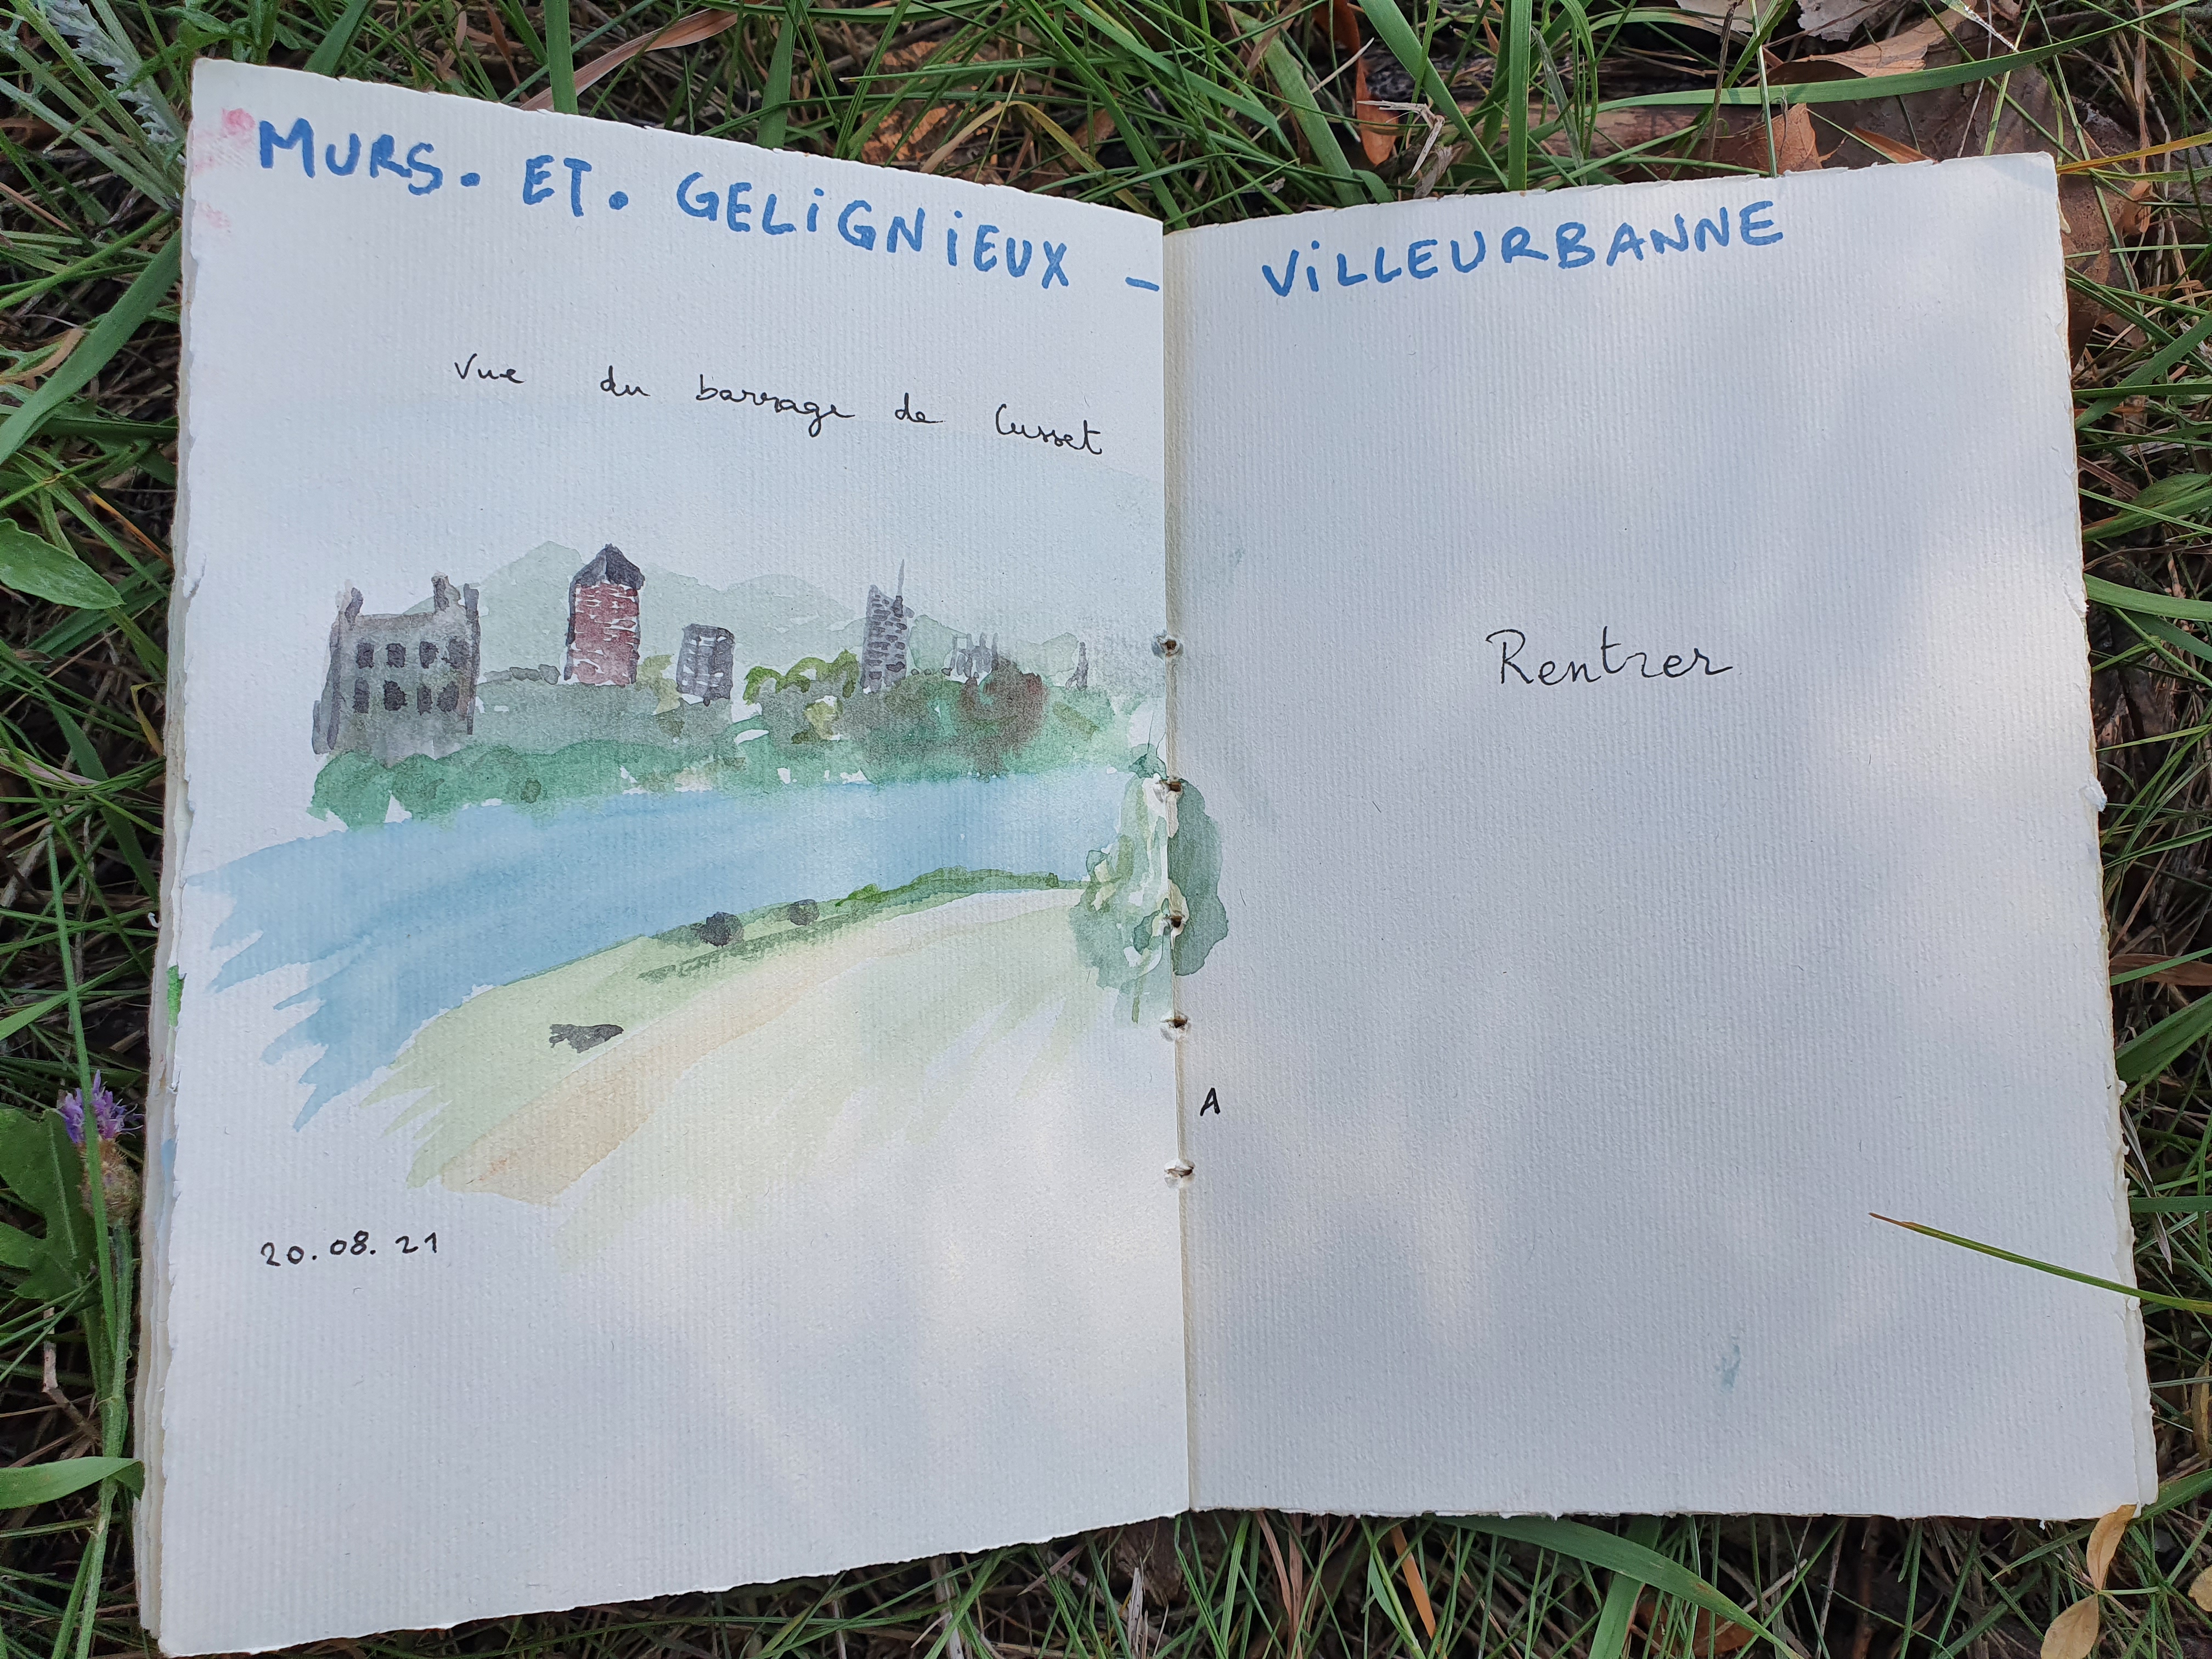 MURS. ET. GELiGNiEUX - ViLLEURBANNE
Vue du barrage de Cusset
Rentrer
A
20.08.21